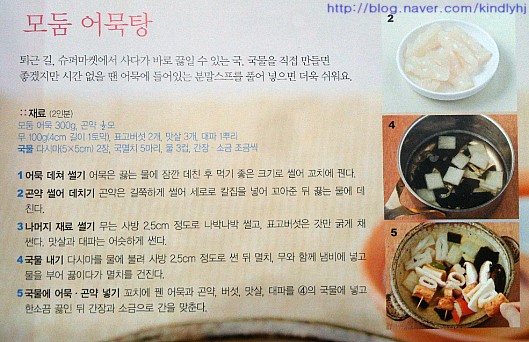 모둠 어묵탕
http://blog.naver.com/kindlyhj
퇴근 길, 슈퍼마켓에서 사다가 바로 끓일 수 있는 국. 국물을 직접 만들면
좋겠지만 시간 없을 땐 어묵에 들어있는 분말스프를 풀어 넣으면 더욱 쉬워요.
재료 (2인분)
모둠 어묵 300g, 곤약 ½모
무 100g(4cm 길이 1토막), 표고버섯 2개, 맛살 3개, 대파 1뿌리
국물 다시마(5×5cm) 2장, 국멸치 5마리, 물 3컵, 간장·소금 조금씩
1 어묵 데쳐 썰기 어묵은 끓는 물에 잠깐 데친 후 먹기 좋은 크기로 썰어 꼬치에 꿴다.
2 곤약 썰어 데치기 곤약은 길쭉하게 썰어 세로로 칼집을 넣어 꼬아준 뒤 끓는 물에 데
친다.
3 나머지 재료 썰기 무는 사방 2.5cm 정도로 나박나박 썰고, 표고버섯은 갓만 굵게 채
썬다. 맛살과 대파는 어슷하게 썬다.
4 국물 내기 다시마를 물에 불려 사방 2.5cm 정도로 썬 뒤 멸치, 무와 함께 냄비에 넣고
물을 부어 끓이다가 멸치를 건진다.
5 국물에 어묵·곤약 넣기 꼬치에 꿴 어묵과 곤약, 버섯, 맛살, 대파를 ④의 국물에 넣고
한소끔 끓인 뒤 간장과 소금으로 간을 맞춘다.
2
4
5